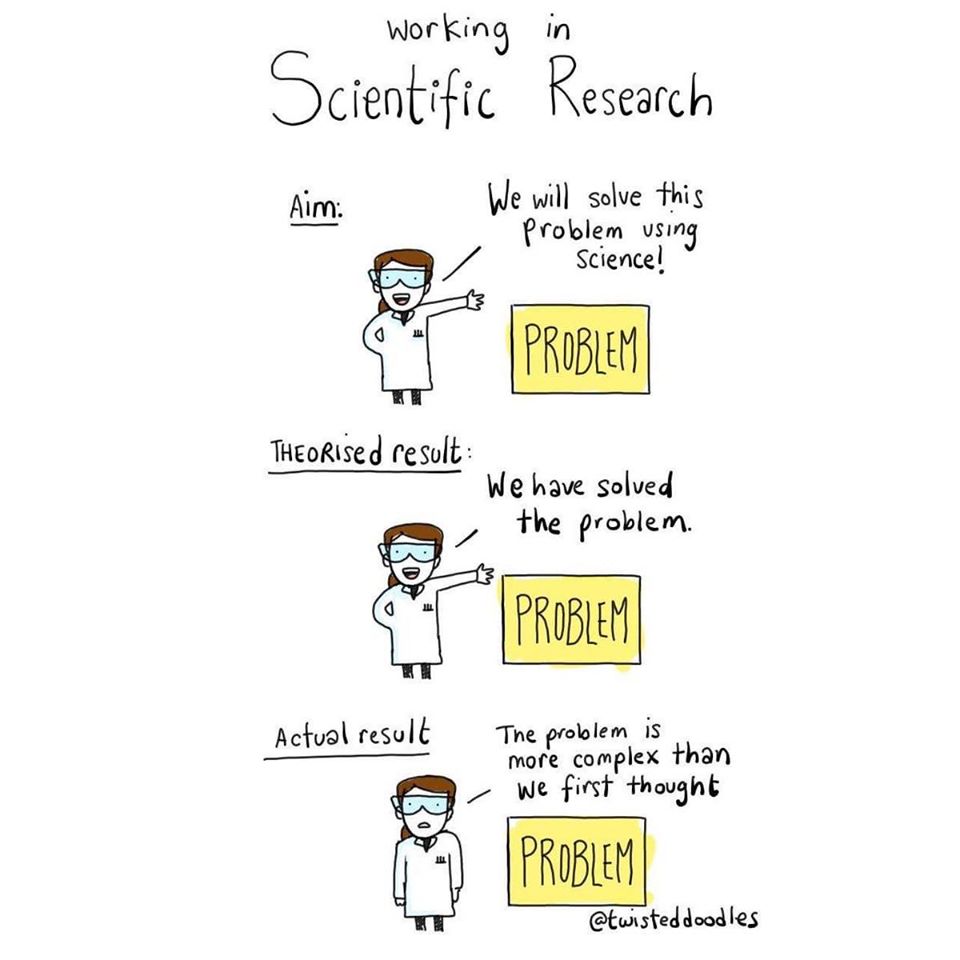 Working in
Scientific Research
Aim:
We will solve this
problem using
science!
PROBLEM
THEORised result:
We have solved
the problem.
PROBLEM
Actual result
The problem is
more complex than
we first thought
PROBLEM
@twisteddoodles